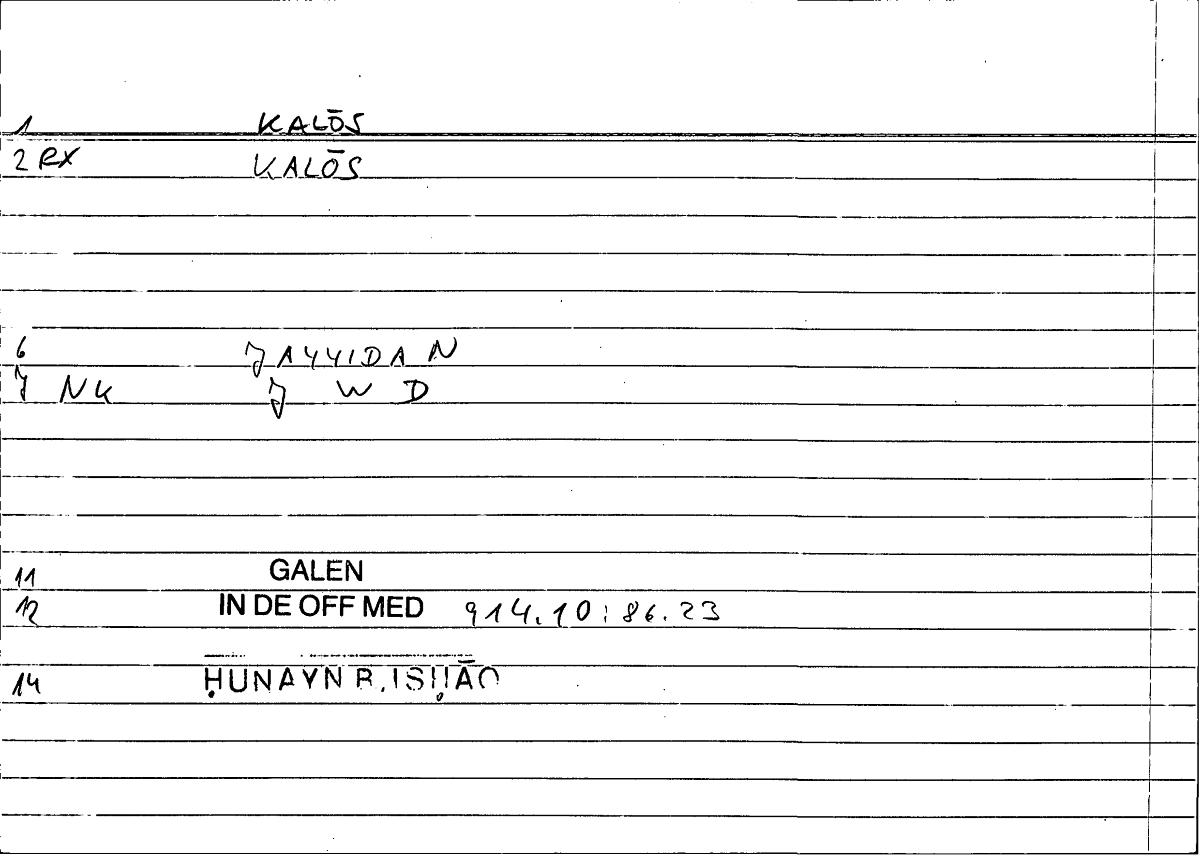 1 KALŌS
2 RX KALŌS
6 JAYYIDAN
7 NK J W D
11 GALEN
12 IN DE OFF MED 914.10:86.23
14 ḤUNAYN B. ISḤĀQ